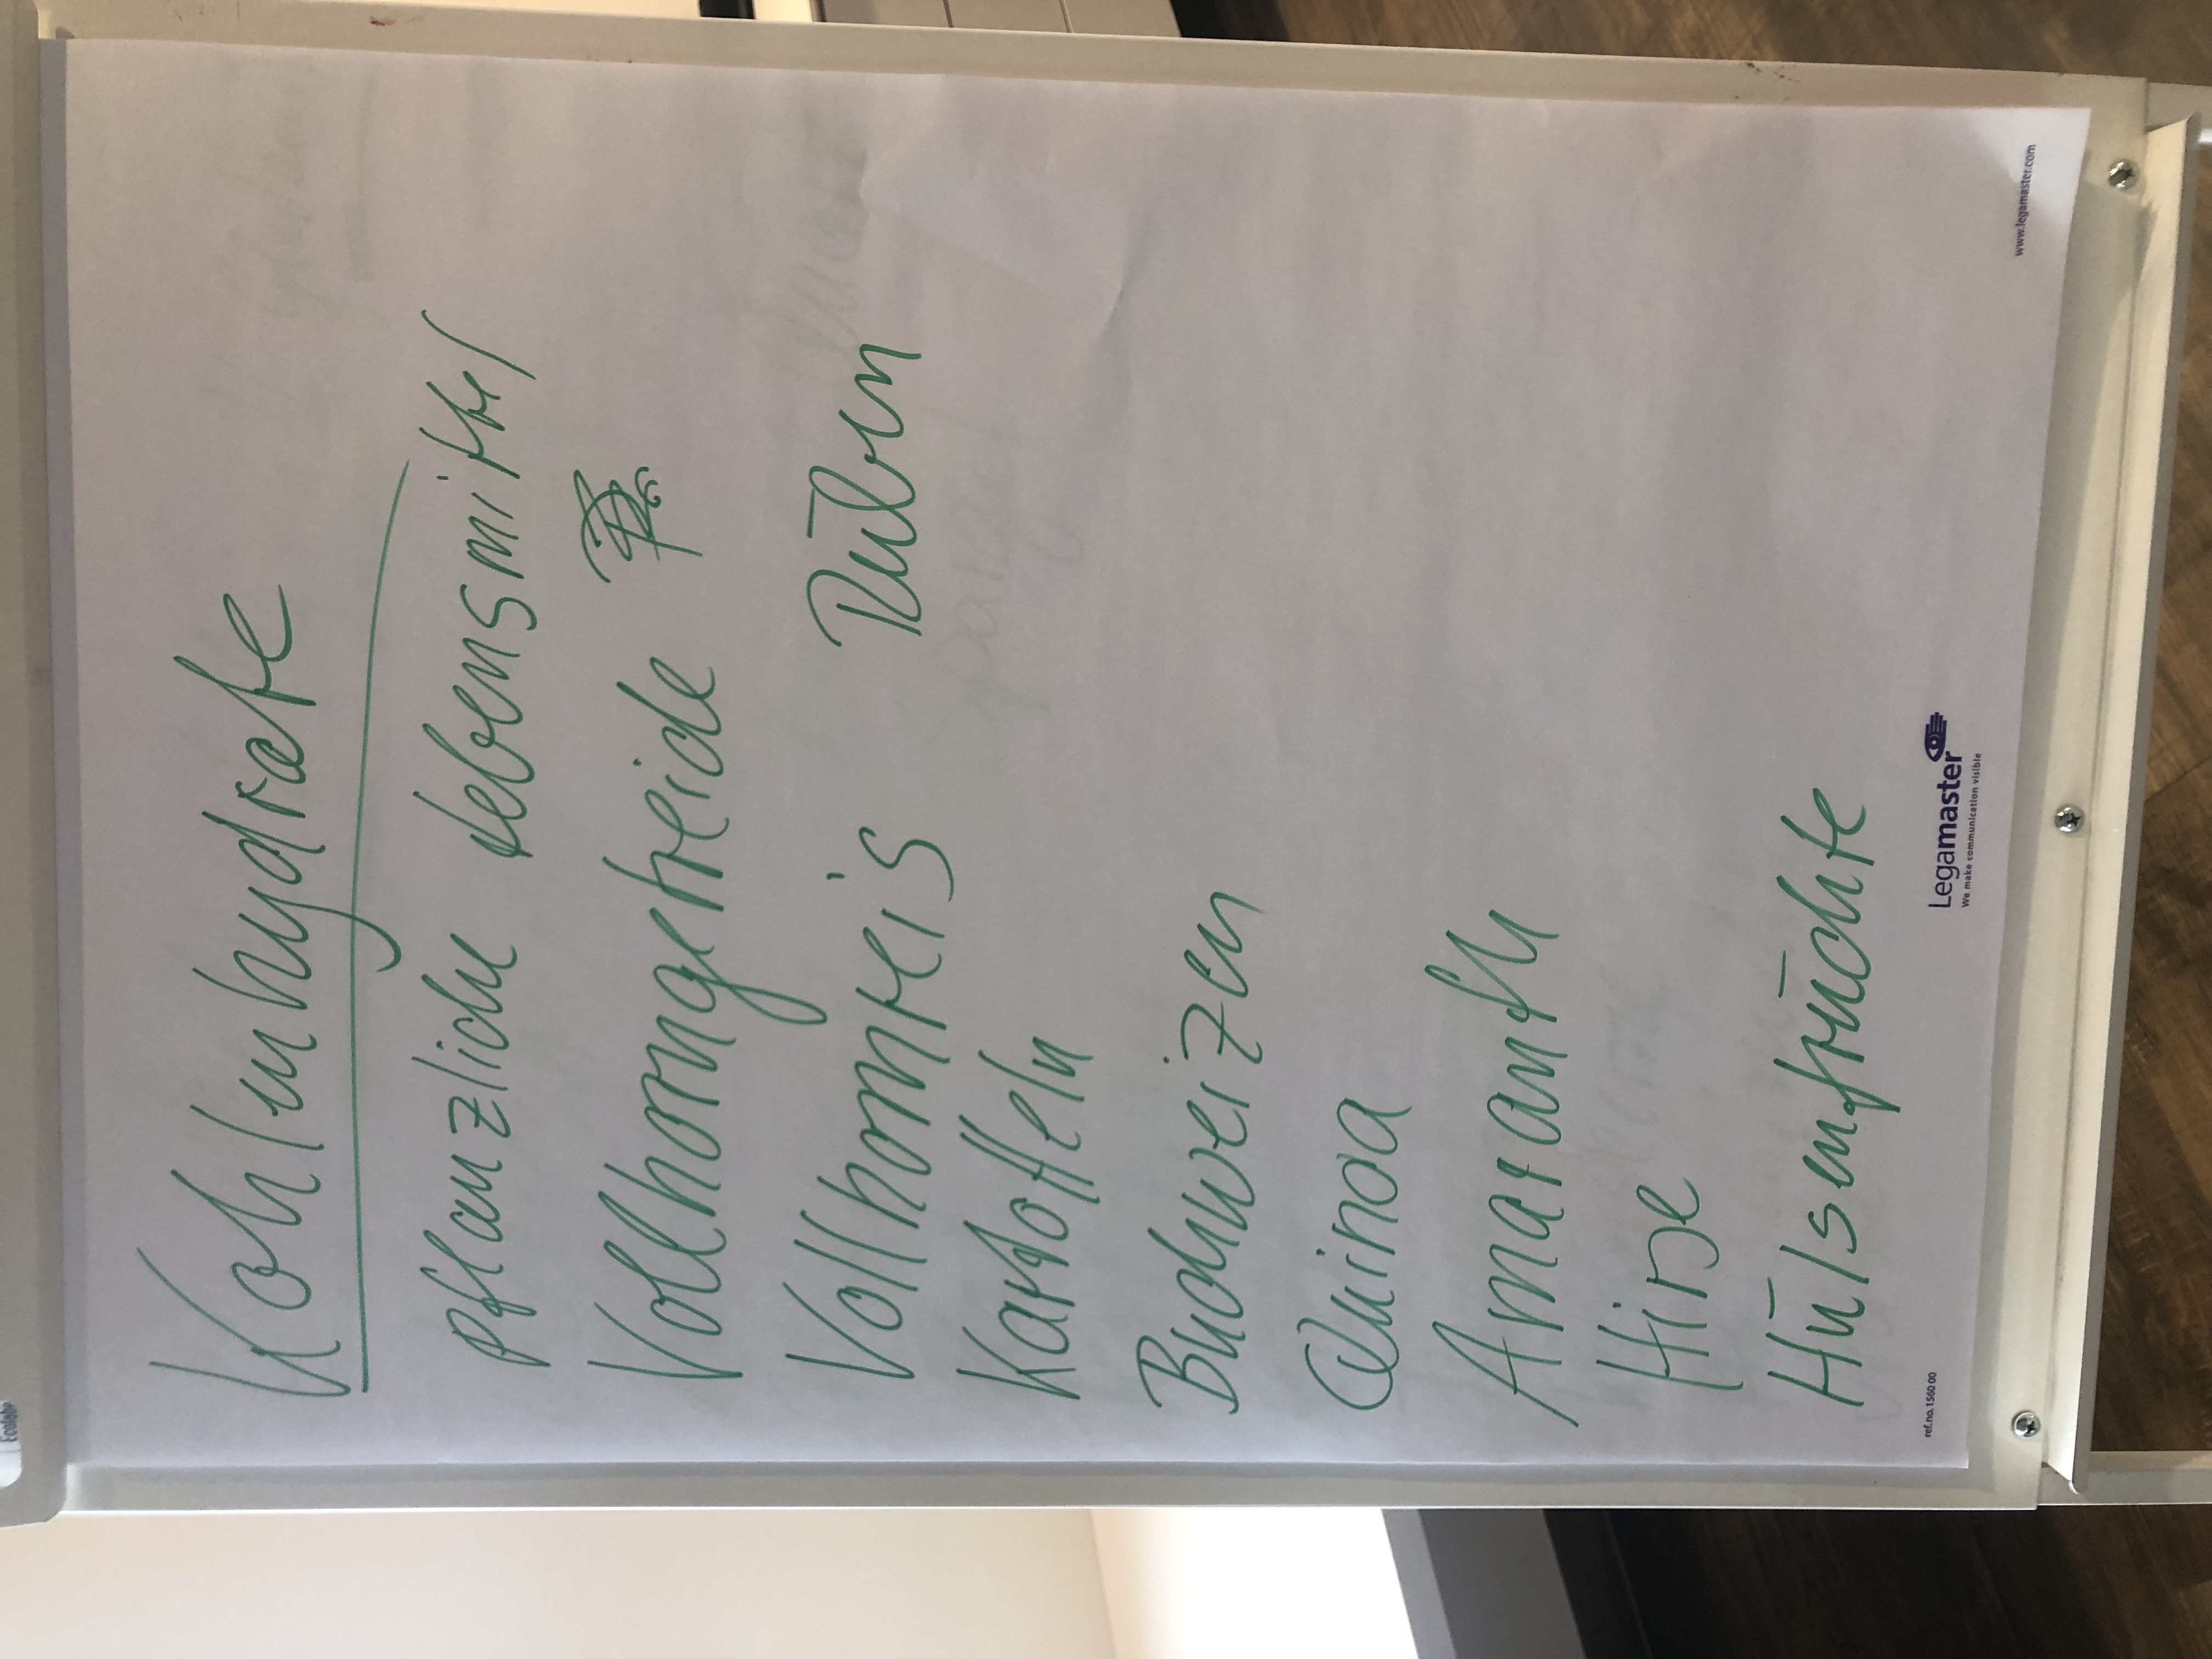 Kohlenhydrate
pflanzliche Lebensmittel
Vollkorngetreide
Vollkornreis Rüben
Kartoffeln
Buchweizen
Quinoa
Amaranth
Hirse
Hülsenfrüchte
Legamaster
We make communication visible
ref.no.1560 00
www.legamaster.com